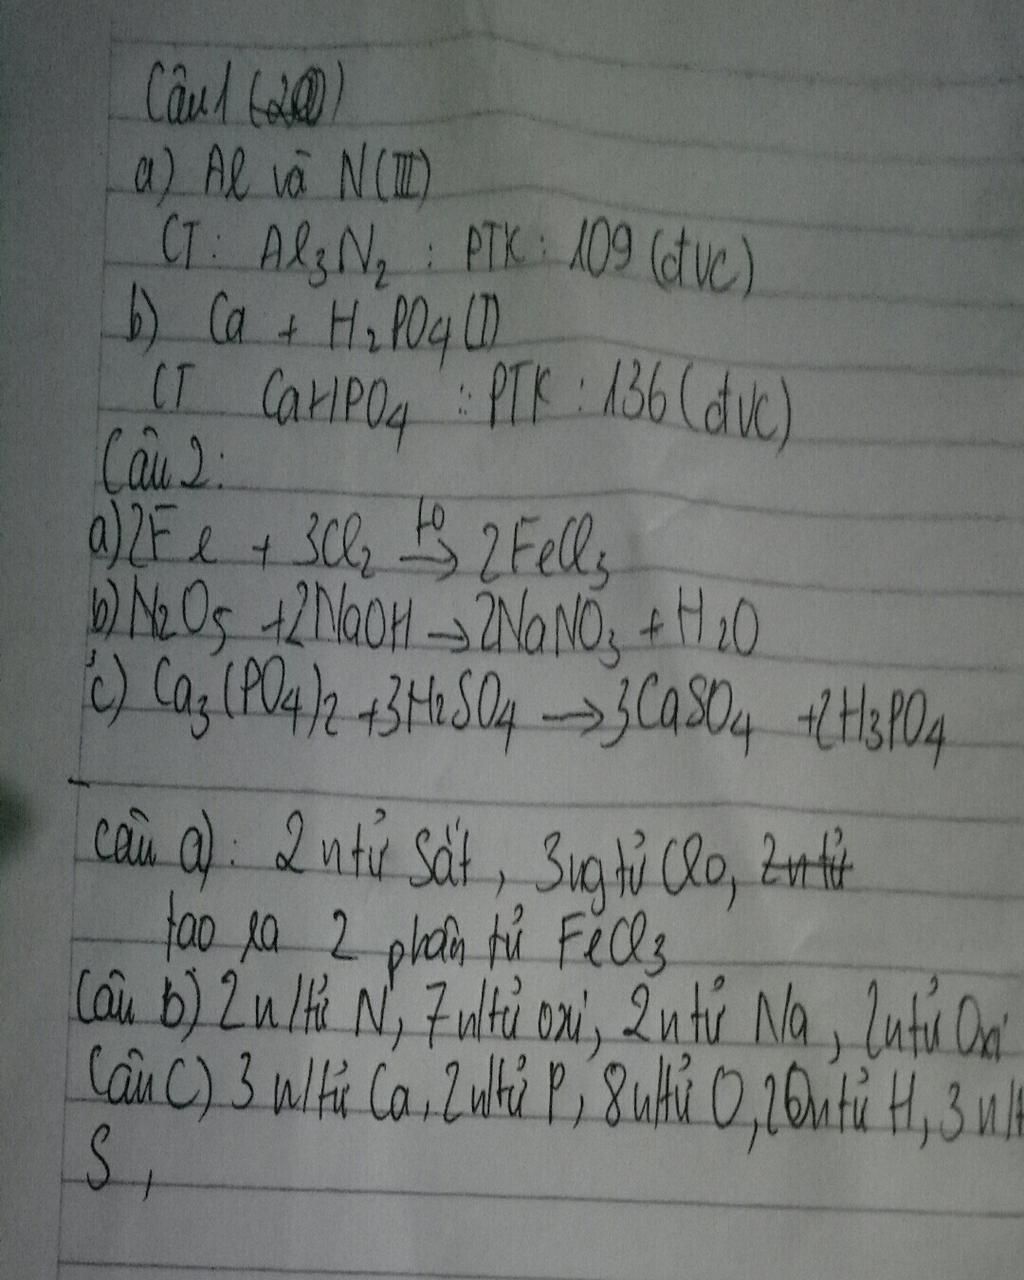 Câu 1 (2đ)
a) Al và N(III)
CT: Al3N2 : PTK: 109 (đvc)
b) Ca + H2PO4 (I)
CT CaHPO4 :: PTK : 136 (đvc)
Câu 2:
a) 2Fe + 3Cl2 t0→ 2FeCl3
b) N2O5 +2NaOH → 2NaNO3 + H2O
c) Ca3(PO4)2 +3H2SO4 → 3CaSO4 +2H3PO4
câu a): 2 ntử sắt, 3ngtử Clo, 2ntử
tạo ra 2 phân tử FeCl3
Câu b) 2 n/tử N, 7n/tử oxi, 2ntử Na, 2ntử Oxi
Câu C) 3 n/tử Ca, 2n/tử P, 8n/tử O, ntử H, 3 n/t
S,